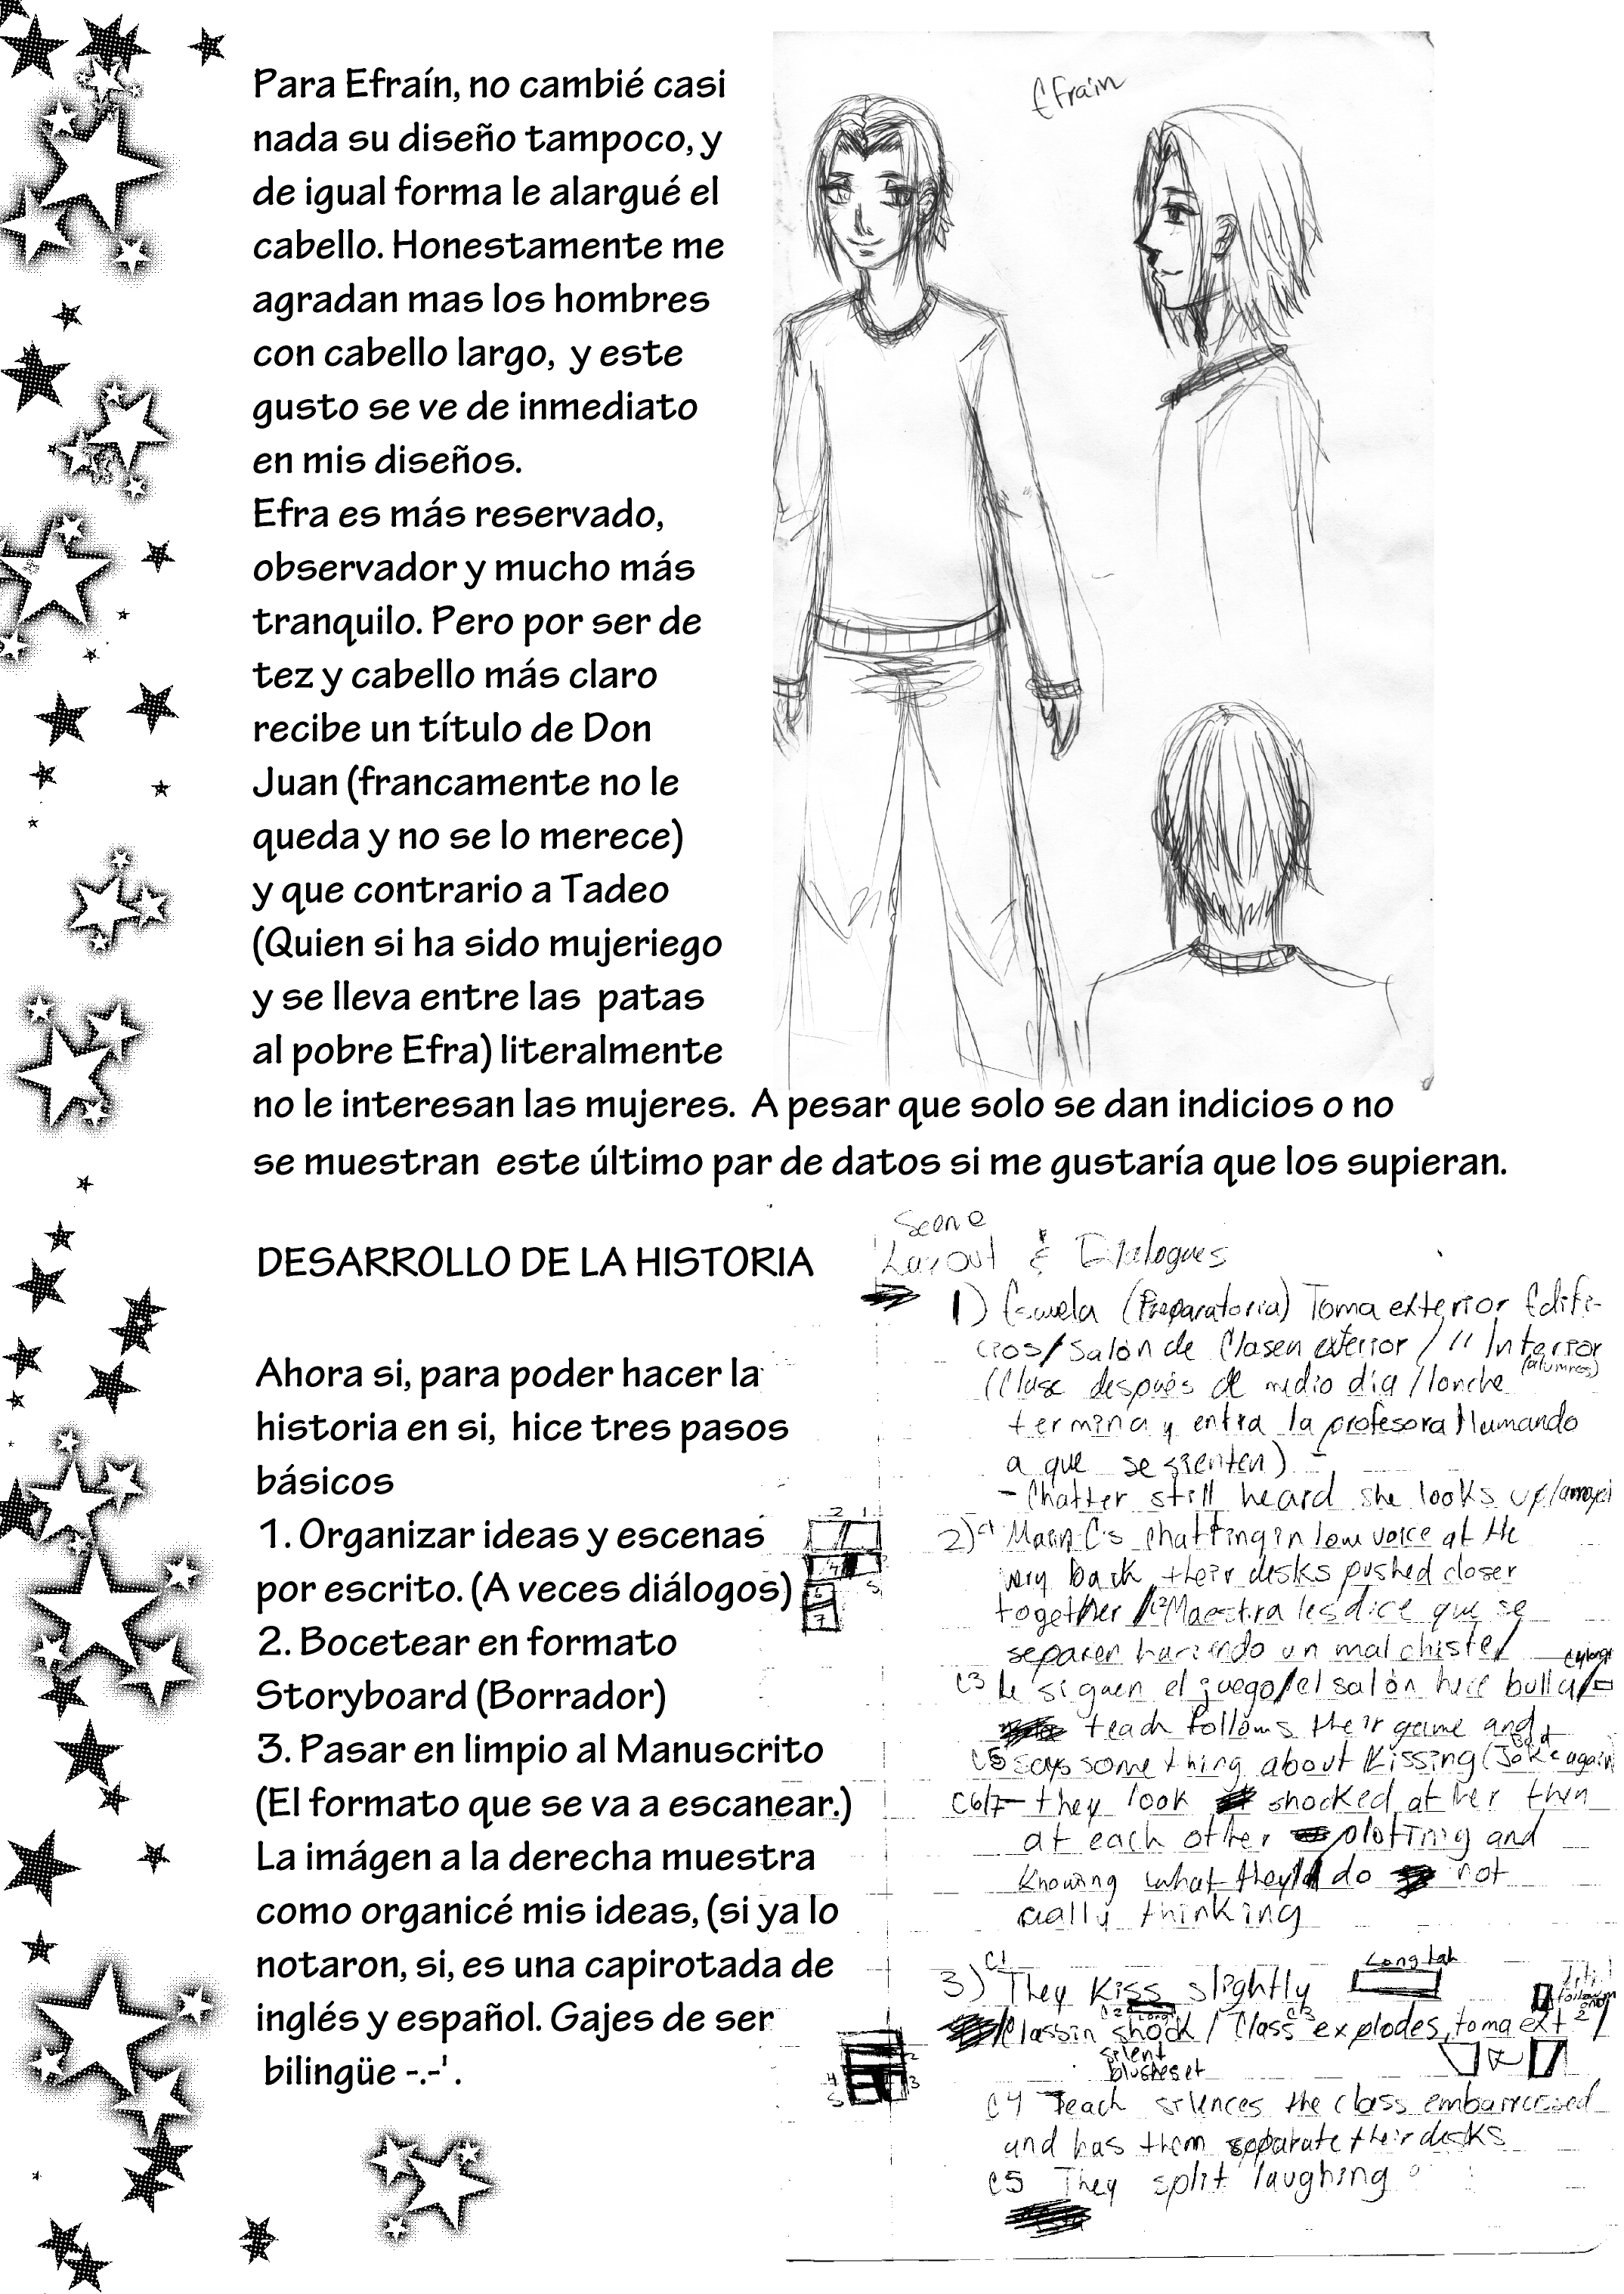 Para Efraín, no cambié casi
nada su diseño tampoco, y
de igual forma le alargué el
cabello. Honestamente me
agradan mas los hombres
con cabello largo, y este
gusto se ve de inmediato
en mis diseños.
Efra es más reservado,
observador y mucho más
tranquilo. Pero por ser de
tez y cabello más claro
recibe un título de Don
Juan (francamente no le
queda y no se lo merece)
y que contrario a Tadeo
(Quien si ha sido mujeriego
y se lleva entre las patas
al pobre Efra) literalmente
no le interesan las mujeres. A pesar que solo se dan indicios o no
se muestran este último par de datos si me gustaría que los supieran.
Efraín
DESARROLLO DE LA HISTORIA
Ahora si, para poder hacer la
historia en si, hice tres pasos
básicos
1. Organizar ideas y escenas
por escrito. (A veces diálogos)
2. Bocetear en formato
Storyboard (Borrador)
3. Pasar en limpio al Manuscrito
(El formato que se va a escanear.)
La imágen a la derecha muestra
como organicé mis ideas, (si ya lo
notaron, si, es una capirotada de
inglés y español. Gajes de ser
bilingüe -.-' .
Scene
Layout & Dialogues
1) Escuela (Preparatoria) Toma exterior Edifi-
cios/Salón de Clases en exterior / " Interior
(alumnos)
(Clase después de medio día /lonche
termina y entra la profesora llamando
a que se sienten)
- Chatter still heard she looks up/
2) c1 Main C's chatting in low voice at the
very back their desks pushed closer
together /c2 Maestra les dice que se
separen haciendo un mal chiste/
C3 le siguen el juego/el salón hace bulla/
teach follows their game and
C5 says something about Kissing (Bad Joke again
C6/7 - they look shocked at her then
at each other plotting and
Knowing what they'll do not
really thinking
3) C1 They Kiss slightly
Class in shock / Class explodes, toma ext
silent
C4 Teach silences the class embarrassed
and has them separate their desks
C5 They split laughing